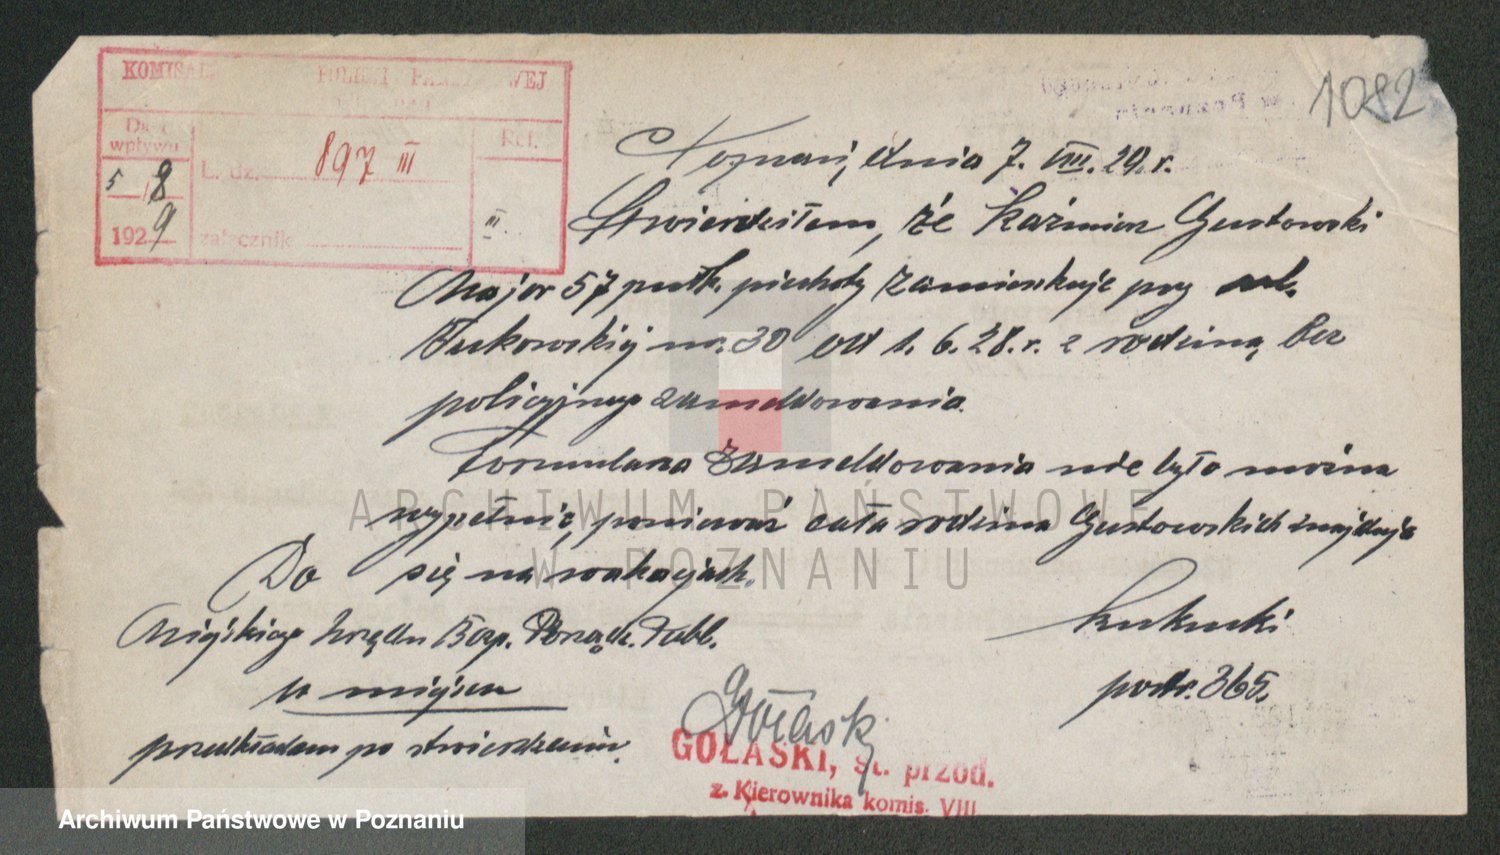 1082
KOMISAR POLICJI PAŃSTWOWEJ
Data
wpływu
5/8
1929
L. dz. 897 III
załącznik
Ref.
III
Poznań, dnia 7. VIII. 29. r.
Stwierdziłem, że Kaźmierz Gustowski
Major 57 pułk. piechoty zamieszkuje przy ul.
Bukowskiej nr. 30 od 1. 6. 28. r. z rodziną bez
policyjnego zameldowania.
Formularza zameldowania nie było można
wypełnić, ponieważ cała rodzina Gustowskich znajduje
się na wakacjach.
Do
Miejskiego Urzędu Bezp. Porządk. Publ.
w miejscu
przedkładam po stwierdzeniu.
post. 365.
Gołaski
GOŁASKI, st. przod.
z. Kierownika komis. VIII
ARCHIWUM PAŃSTWOWE
W POZNANIU
Archiwum Państwowe w Poznaniu